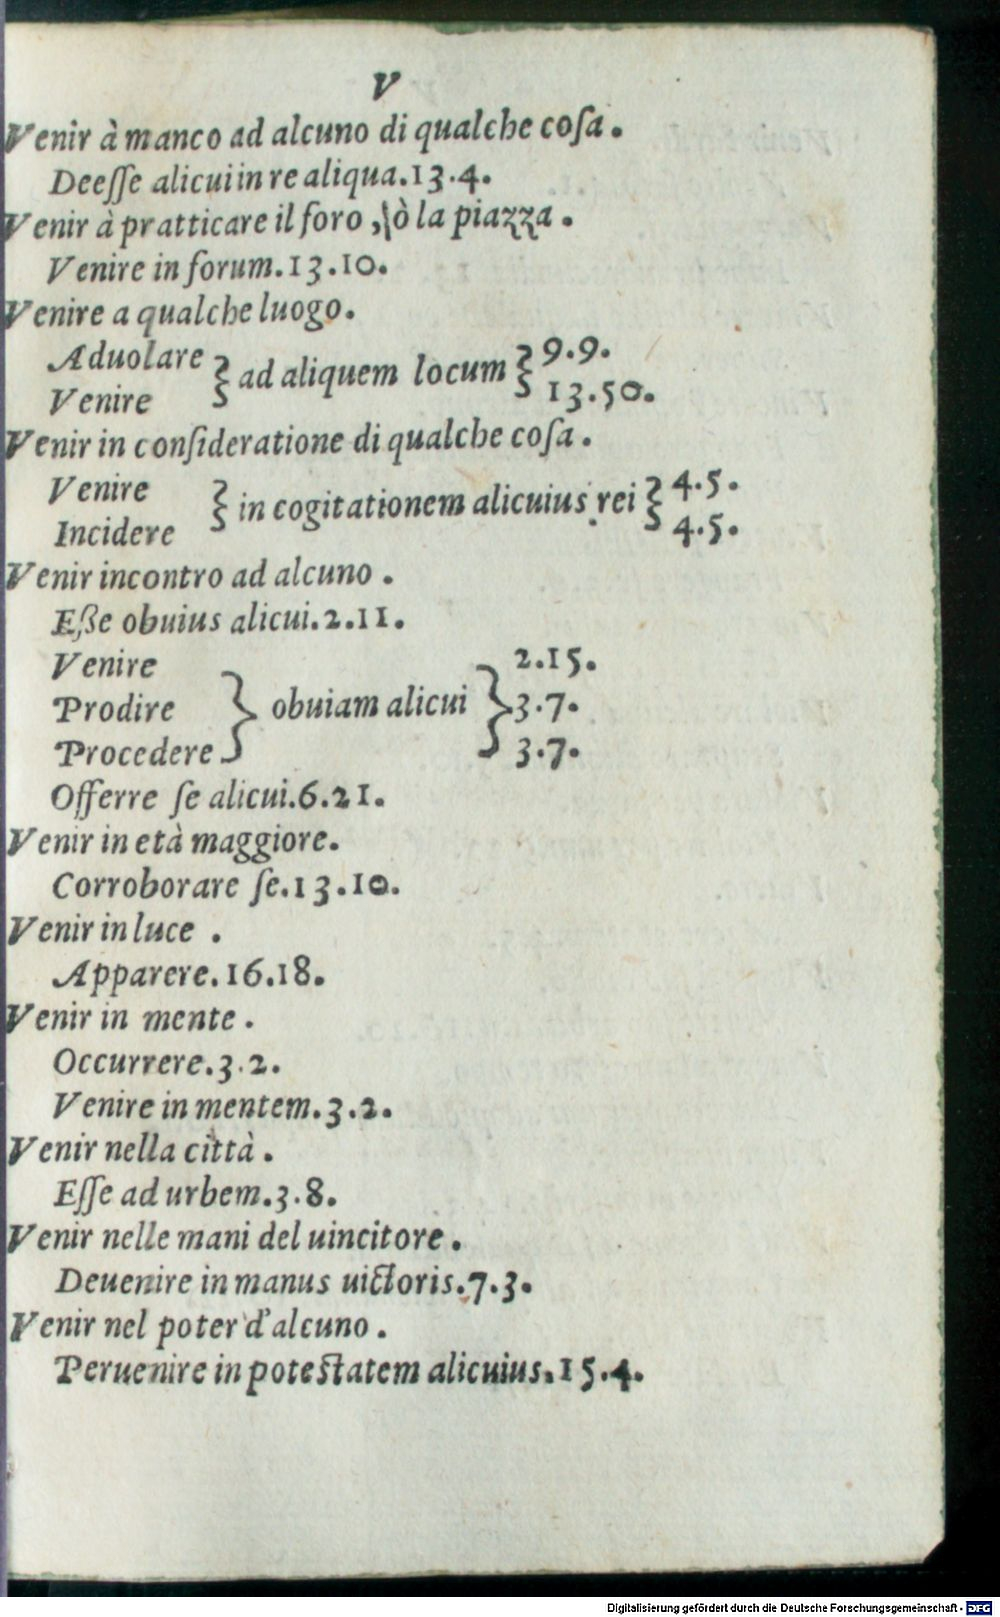 V
Venir à manco ad alcuno di qualche coſa.
Deeſſe alicui in re aliqua.13.4.
Venir à pratticare il foro, ò la piazza.
Venire in forum.13.10.
Venire a qualche luogo.
Aduolare } ad aliquem locum } 9.9.
Venire } 13.50.
Venir in conſideratione di qualche coſa.
Venire } in cogitationem alicuius rei } 4.5.
Incidere } 4.5.
Venir incontro ad alcuno.
Eße obuius alicui.2.11.
Venire 2.15.
Prodire } obuiam alicui } 3.7.
Procedere 3.7.
Offerre ſe alicui.6.21.
Venir in età maggiore.
Corroborare ſe.13.10.
Venir in luce.
Apparere.16.18.
Venir in mente.
Occurrere.3.2.
Venire in mentem.3.2.
Venir nella città.
Eſſe ad urbem.3.8.
Venir nelle mani del uincitore.
Deuenire in manus uictoris.7.3.
Venir nel poter d'alcuno.
Peruenire in poteſtatem alicuius.15.4.
Digitalisierung gefördert durch die Deutsche Forschungsgemeinschaft - DFG